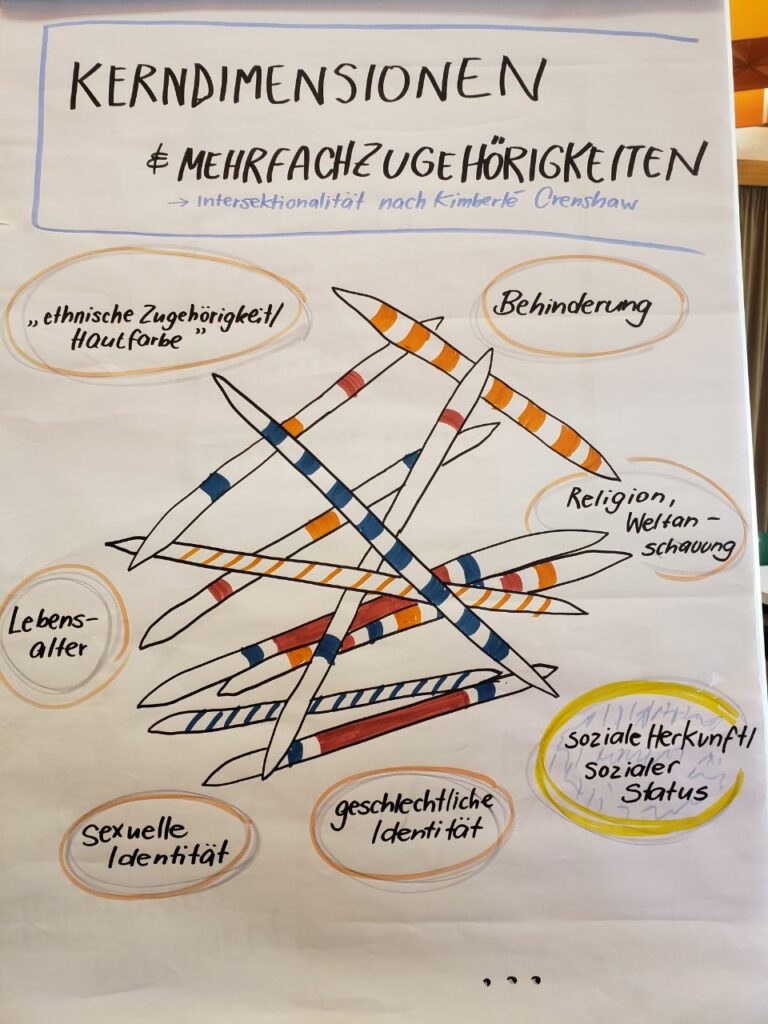 KERNDIMENSIONEN
& MEHRFACHZUGEHÖRIGKEITEN
→ Intersektionalität nach Kimberlé Crenshaw
„ethnische Zugehörigkeit/
Hautfarbe”
Behinderung
Religion,
Weltan-
schauung
Lebens-
alter
soziale Herkunft/
sozialer
Status
geschlechtliche
Identität
sexuelle
Identität
...